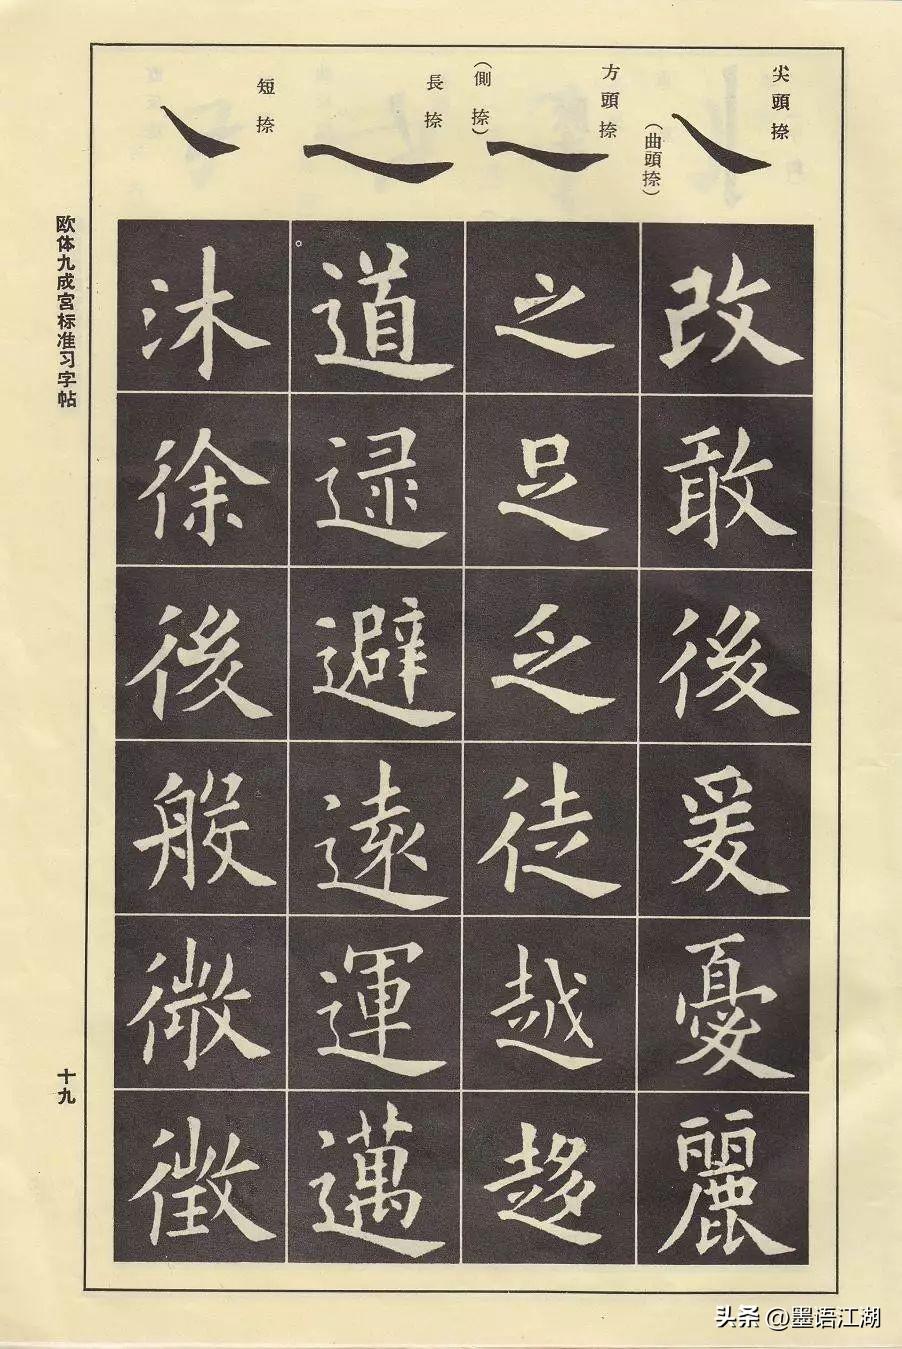 尖頭捺
(曲頭捺)
方頭捺
(側捺)
長捺
短捺
改敢後爰憂麗
之足乏徒越趍
道逮避遠運邁
沐徐後般微徵
欧体九成宮标准习字帖
十九
头条 @墨语江湖